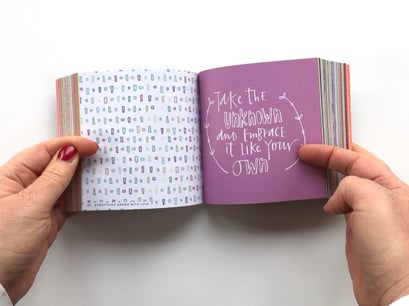 EVERYTHING GROWS WITH LOVE
take the
unknown
and embrace
it like your
own